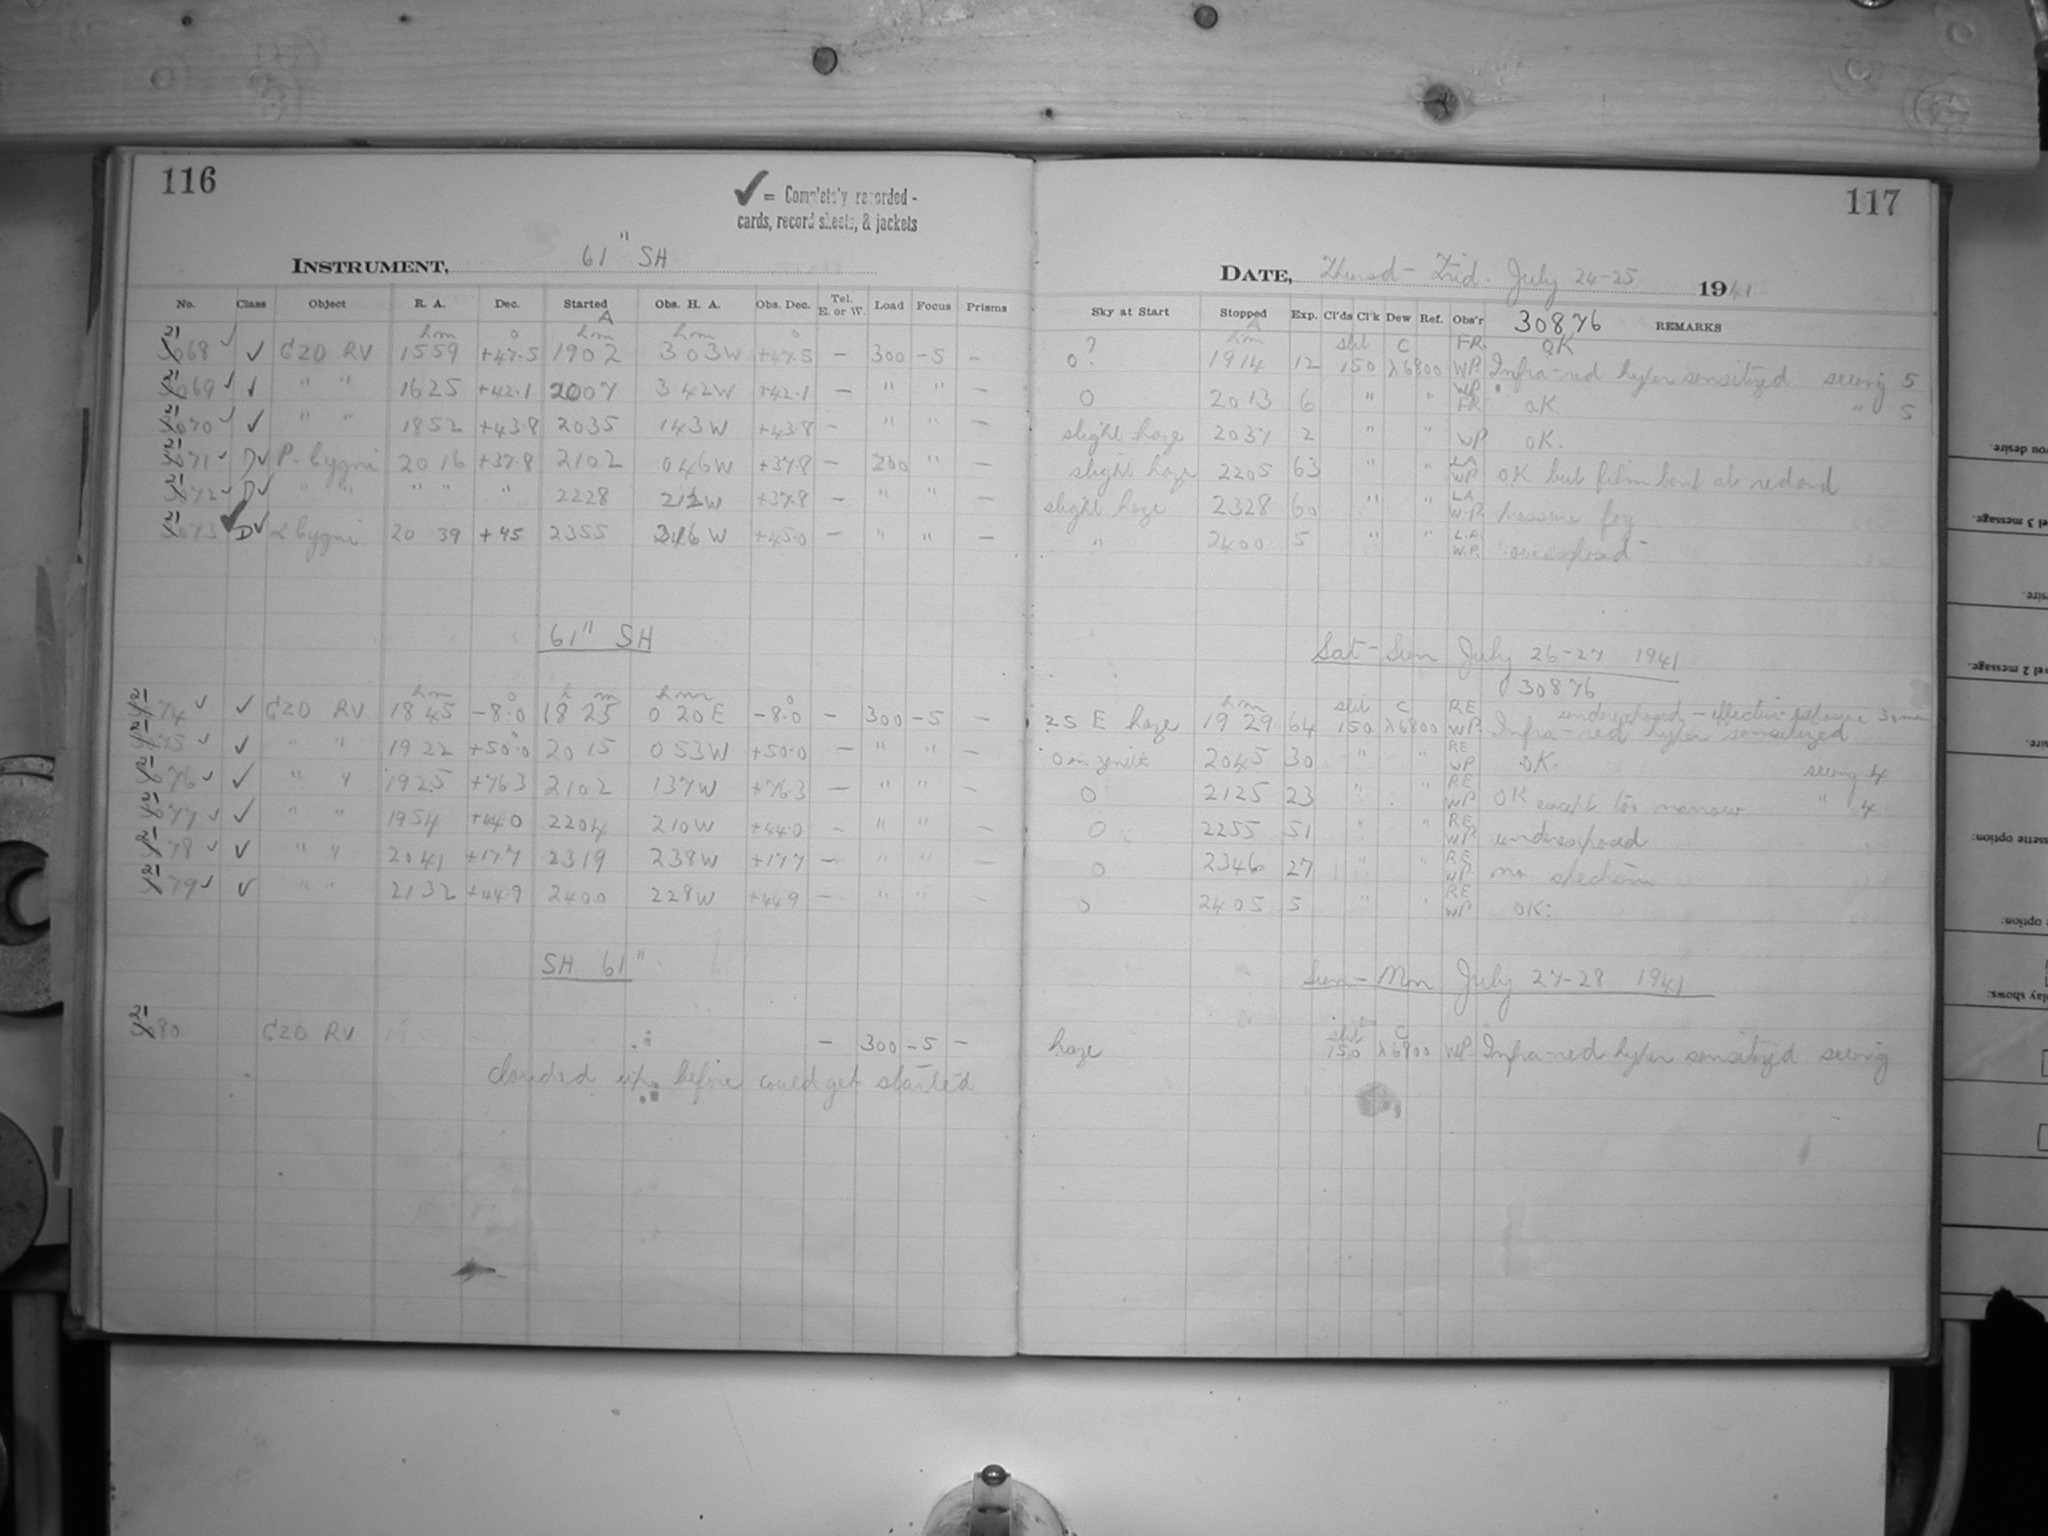 116
✓ = Completely recorded -
cards, record sheets, & jackets
INSTRUMENT, 61" SH
No. Class Object R. A. Dec. Started Obs. H. A. Obs. Dec. Tel. E. or W. Load Focus Prisms
A
h m ° h m h m °
21 068 ✓ ✓ GZO RV 1559 +47.5 1902 303W +47.5 – 300 -5 –
21 069 ✓ ✓ " " 1625 +42.1 2007 342W +42.1 – " " –
21 070 ✓ ✓ " " 1852 +43.8 2035 143W +43.8 – " " –
21 071 ✓ D✓ P. Cygni 2016 +37.8 2102 046W +37.8 – 200 " –
21 072 ✓ D✓ " " " " " 2228 212W +37.8 – " " –
21 073 ✓ D✓ α Cygni 20 39 +45 2355 316W +45.0 – " " –
61" SH
h m ° h m h m °
21 74 ✓ ✓ GZO RV 1845 -8.0 18 25 0 20E -8.0 – 300 -5 –
21 75 ✓ ✓ " " 1922 +50.0 2015 053W +50.0 – " " –
21 76 ✓ ✓ " " 1925 +76.3 2102 137W +76.3 – " " –
21 77 ✓ ✓ " " 1954 +44.0 2204 210W +44.0 – " " –
21 78 ✓ ✓ " " 2041 +17.7 2319 238W +17.7 – " " –
21 79 ✓ ✓ " " 2132 +44.9 2400 228W +44.9 – " " –
SH 61"
21 080 GZO RV – 300 -5 –
clouded up before could get started
117
DATE, Thursd - Frid. July 24-25 1941
Sky at Start Stopped Exp. Cl'ds Cl'k Dew Ref. Obs'r 30876 REMARKS
A
h m slit C FR OK
0? 1914 12 150 λ6800 WP Infra-red hyper sensitized seeing 5
0 2013 6 " " WP FR OK. " 5
slight haze 2037 2 " " WP OK.
slight haze 2205 63 " " LA WP OK but film bent at red end
slight haze 2328 60 " " LA W.P. fog
" 2400 5 " " L.A. W.P. overexposed
Sat - Sun July 26-27 1941
30876
h m slit C RE underexposed - effective exposure 30 min
E haze 19 29 64 150 λ6800 WP Infra-red hyper sensitized
0 in zenith 2045 30 " " RE WP OK. seeing 4
0 2125 23 " " RE WP OK except too narrow " 4
0 2255 51 " " RE WP underexposed
0 2346 27 " " RE WP no spectrum
0 2405 5 " " RE WP OK:
Sun - Mon July 27-28 1941
slit C
haze 150 λ6800 WP Infra-red hyper sensitized seeing